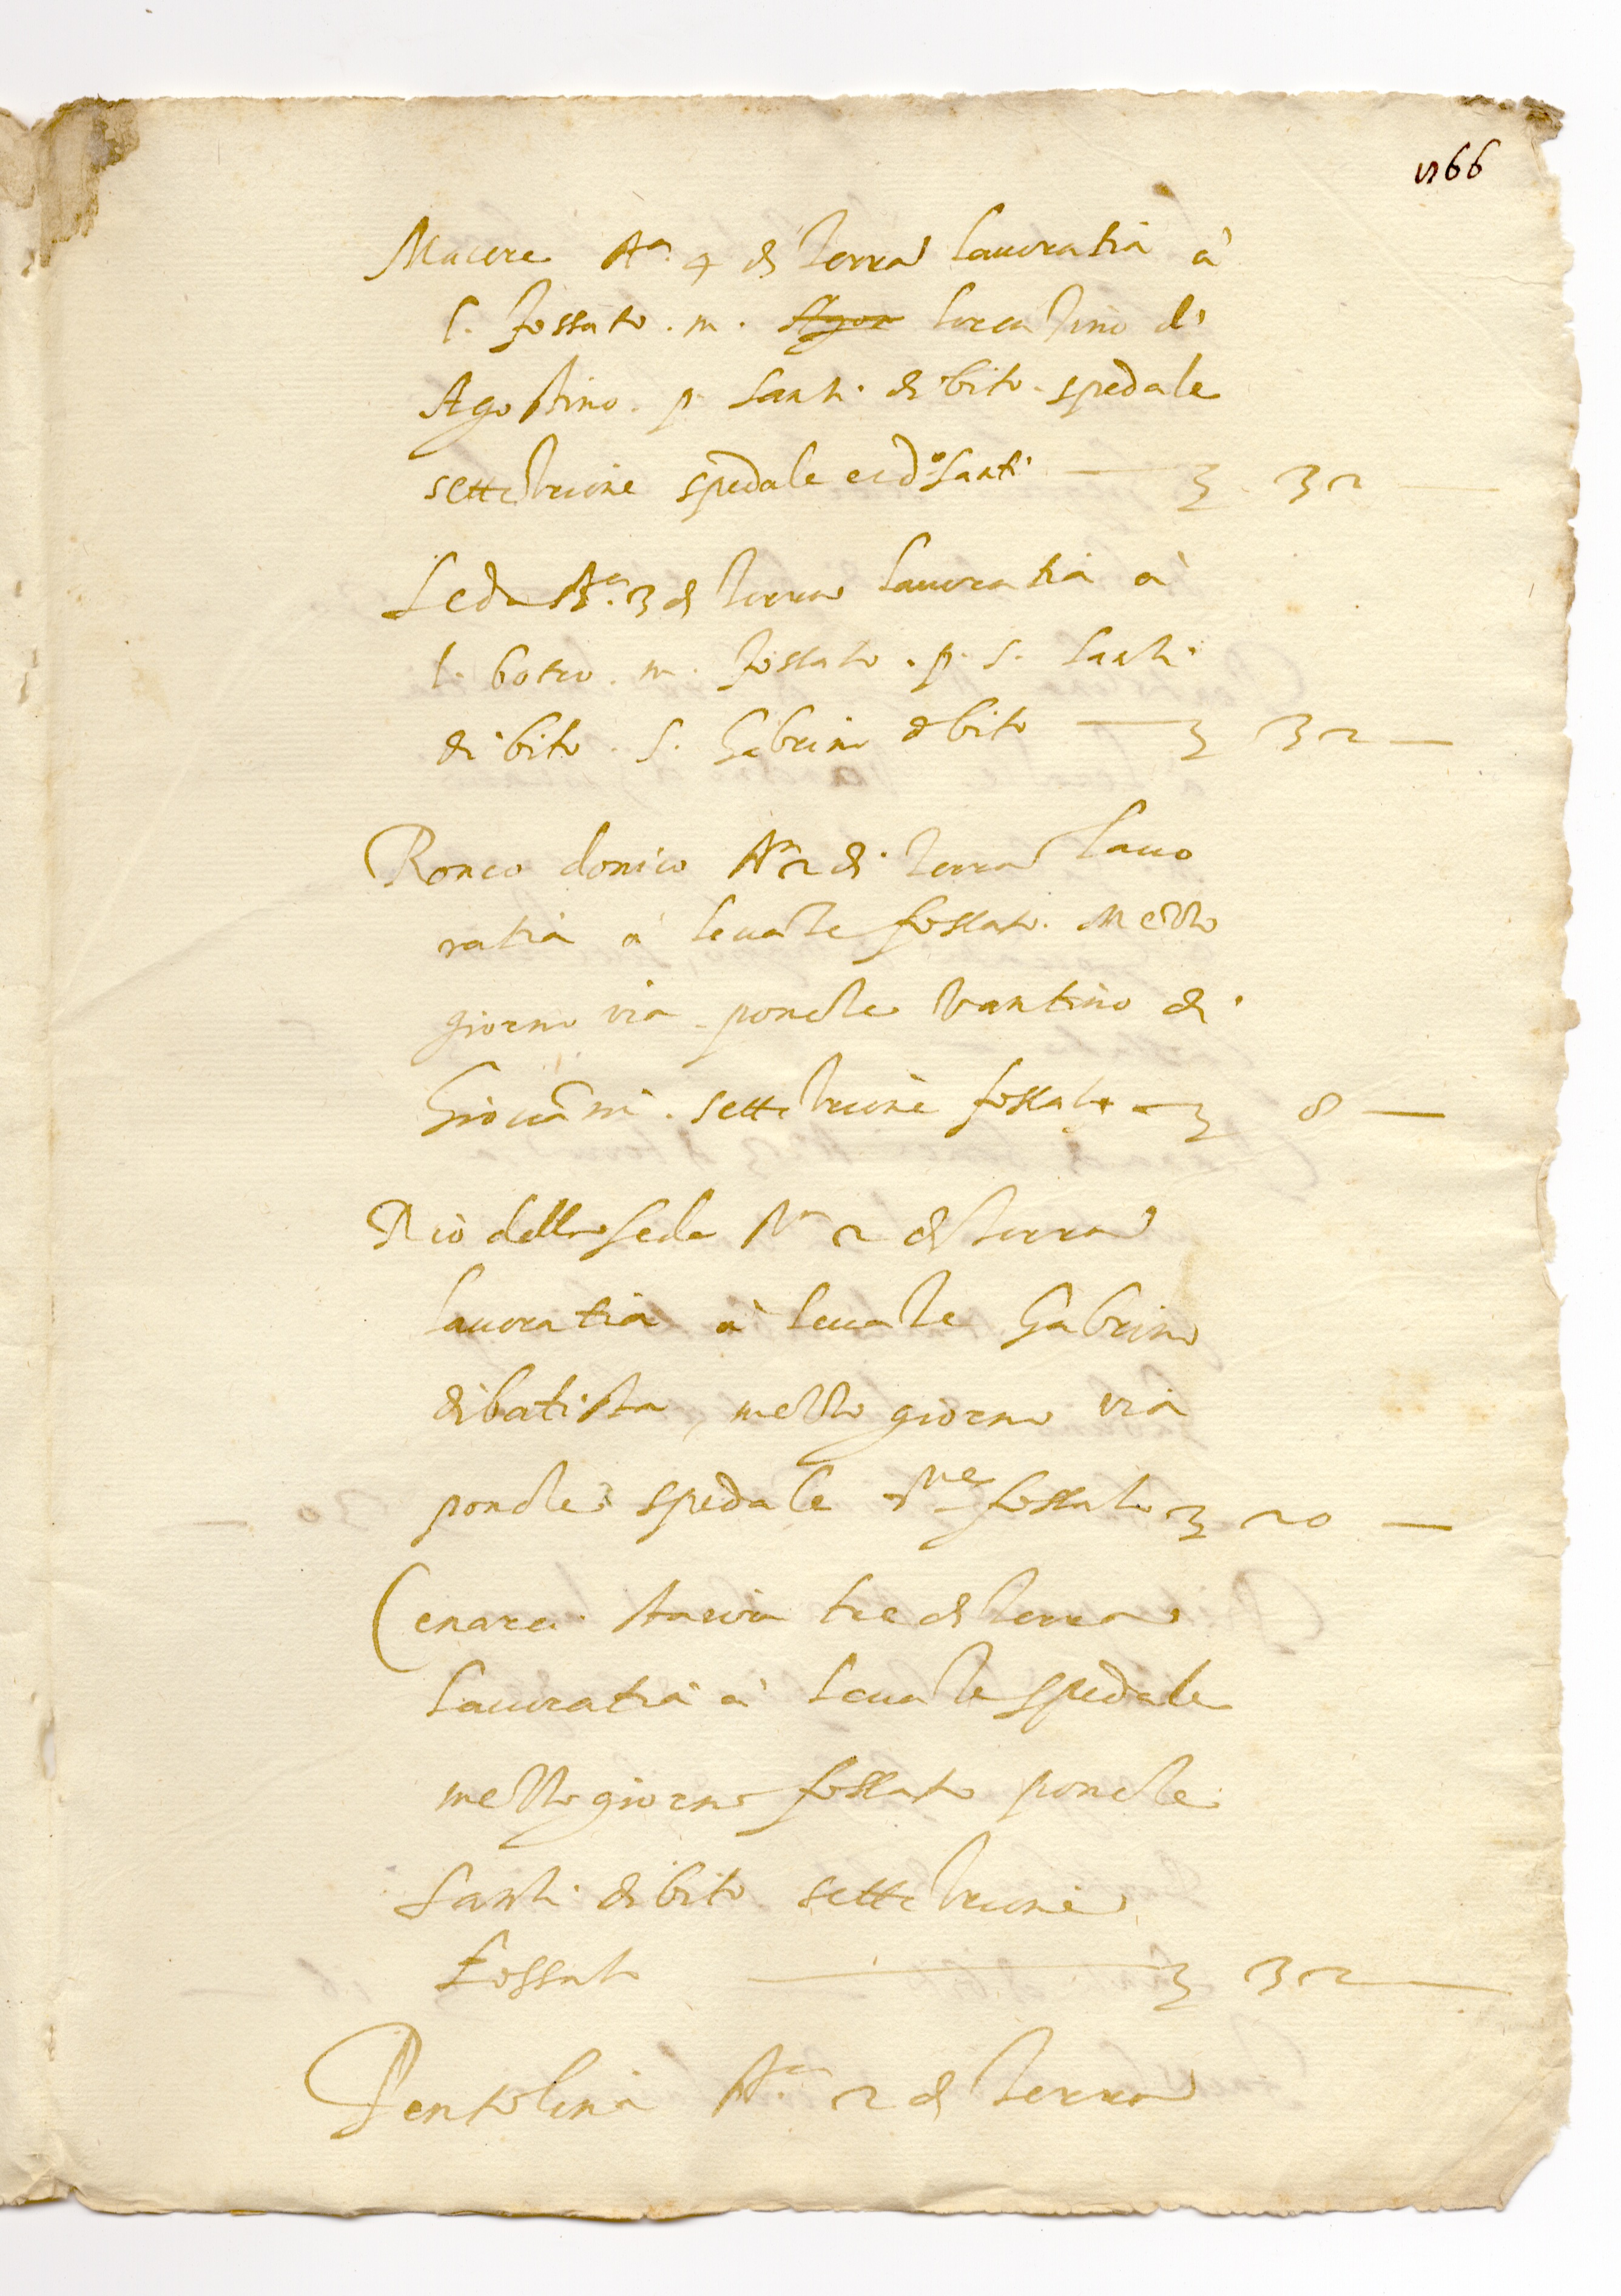 566
Macere sta. 4 di terra lauoratia à
l. fossato. m. Agos lorentino di
Agostino. p. santi di bito. spedale
settetrione spedale e ed.o santi — 3 32 —
Seda sta. 3 di terra lauoratia à
l. bosco. m. fossato. p. s. santi
di bito. s. Gabrino di bito — 3 32 —
Ronco donico sta 2 di terra lauo
ratia à leuate fossato. mezzo
giorno via. ponete Santino di
Giouãni. settetrione fossato — 3 8 —
Rio della seda sta 2 di terra
lauoratia à leuate Gabrino
di batista, mezzo giorno via
ponete spedale fossato 3 20 —
Cenarci staiora tre di terra
lauoratia à leuate spedale
mezzo giorno fossato ponete
santi di bito settetrione
fossato — 3 32 —
Pentolina sta. 2 di terra